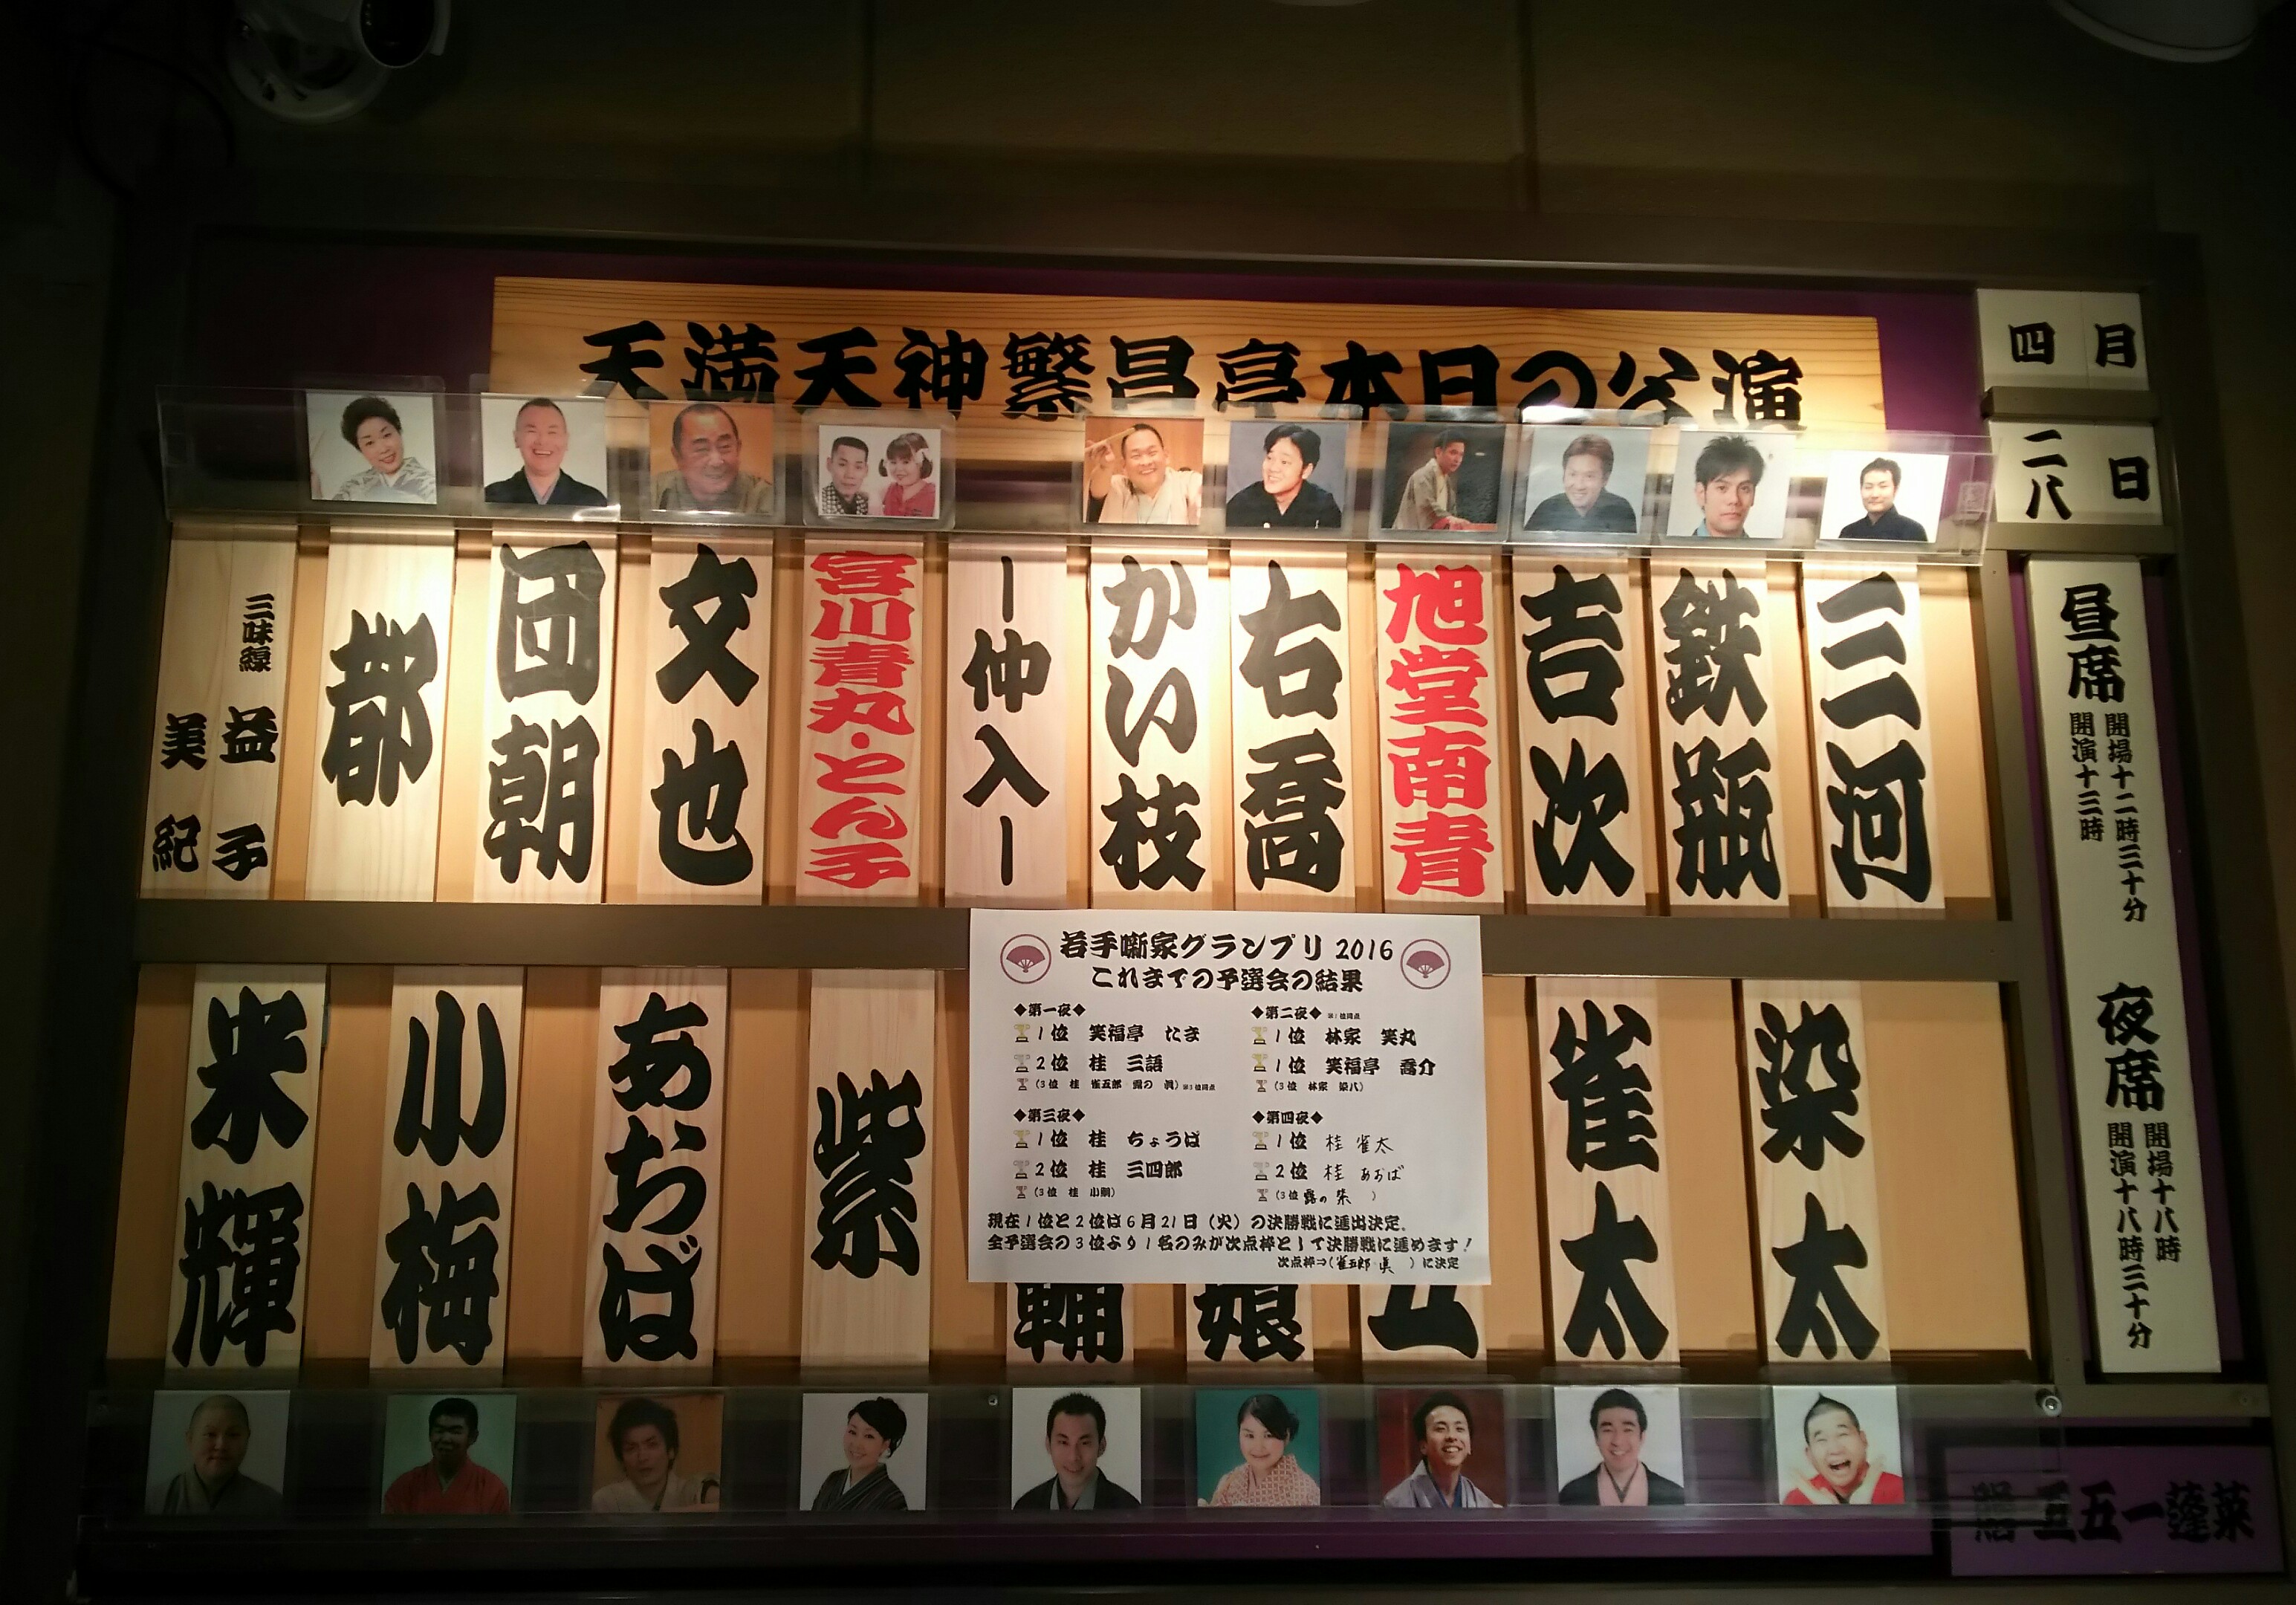 天満天神繁昌亭本日の公演
四月
二八日
昼席
開場十二時三十分
開演十三時
夜席
開場十八時
開演十八時三十分
三河
鉄瓶
吉次
旭堂南青
右喬
かい枝
ー仲入ー
宮川青丸・とん子
文也
団朝
都
三味線
益子
美紀
染太
雀太
五
娘
輔
紫
あおば
小梅
米輝
若手噺家グランプリ 2016
これまでの予選会の結果
◆第一夜◆
1位 笑福亭 たま
2位 桂 三語
(3位 桂 雀五郎 露の 眞) ※3位同点
◆第二夜◆ ※1位同点
1位 林家 笑丸
1位 笑福亭 喬介
(3位 林家 染八)
◆第三夜◆
1位 桂 ちょうば
2位 桂 三四郎
(3位 桂 小鯛)
◆第四夜◆
1位 桂 雀太
2位 桂 あおば
(3位 露の 紫 )
現在1位と2位は6月21日(火)の決勝戦に進出決定。
全予選会の3位より1名のみが次点枠として決勝戦に進めます!
次点枠⇒(雀五郎・眞 )に決定
五五一蓬莱